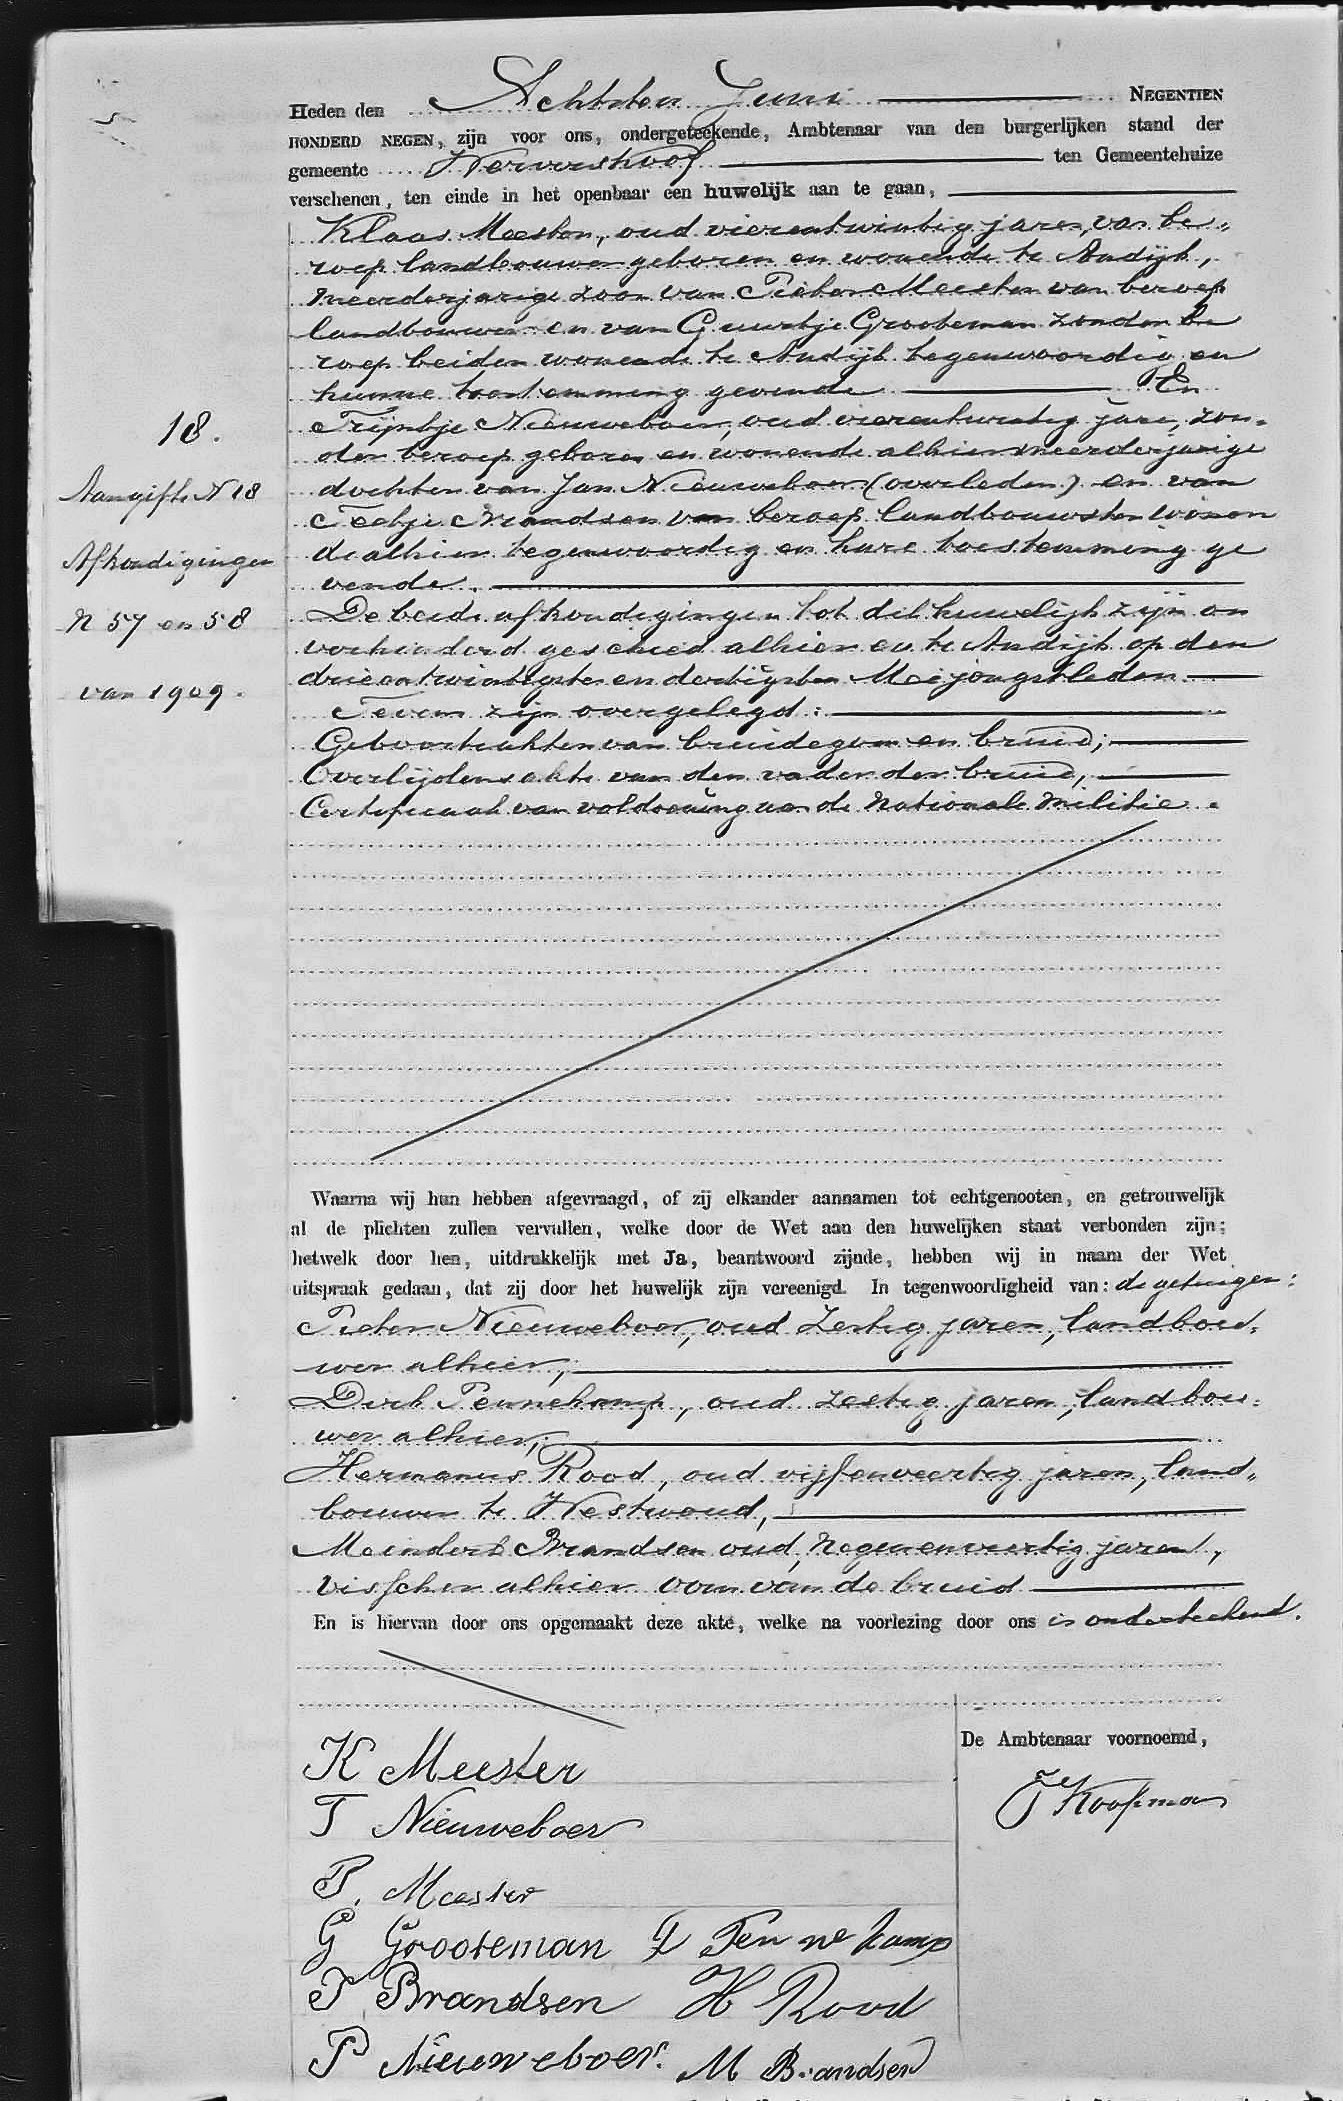 Heden den Achtsten Juni NEGENTIEN
HONDERD NEGEN, zijn voor ons, ondergeteekende, Ambtenaar van den burgerlijken stand der
gemeente Wervershoof ten Gemeentehuize
verschenen, ten einde in het openbaar een huwelijk aan te gaan,
Klaas Meester, oud vierentwintig jaren, van be„
roep landbouwer geboren en wonende te Andijk,
meerderjarige zoon van Pieter Meester van beroep
landbouwer en van Guurtje Grooteman zonder be
roep beiden wonende te Andijk tegenwoordig en
hunne toestemming gevende En
18.
Trijntje Nieuweboer, oud vierentwintig jare, zon„
der beroep geboren en wonende alhier meerderjarige
Aangifte N 18
dochter van Jan Nieuweboer (overleden) en van
Teetje Brandsen van beroep landbouwster wonen
Afkondigingen
de alhier tegenwoordig en hare toestemming ge
vende.
N 57 en 58
De beide afkondigingen tot dit huwelijk zijn on
verhinderd geschied alhier en te Andijk op den
van 1909.
drieentwintigsten en dertigsten Mei jongstleden
Tevens zijn overgelegd:
Geboorteakten van bruidegom en bruid;
Overlijdensakte van den vader der bruid,
Certificaat van voldoening aan de Nationale Militie.
Waarna wij hun hebben afgevraagd, of zij elkander aannamen tot echtgenooten, en getrouwelijk
al de plichten zullen vervullen, welke door de Wet aan den huwelijken staat verbonden zijn;
hetwelk door hen, uitdrukkelijk met Ja, beantwoord zijnde, hebben wij in naam der Wet
uitspraak gedaan, dat zij door het huwelijk zijn vereenigd. In tegenwoordigheid van: de getuigen:
Pieter Nieuweboer, oud Zestig jaren, landbou„
wer alhier,
Dirk Pennekamp, oud zestig jaren, landbou„
wer alhier,
Hermanus Rood, oud vijfenveertig jaren, land„
bouwer te Westwoud,
Meindert Brandsen oud, Negenenveertig jaren,
visscher alhier oom van de bruid
En is hiervan door ons opgemaakt deze akte, welke na voorlezing door ons is onderteekend.
De Ambtenaar voornoemd,
K Meester
J Koopman
T Nieuweboer
P. Meester
G Grooteman D Pennekamp
T Brandsen H Rood
P Nieuweboer. M Brandsen